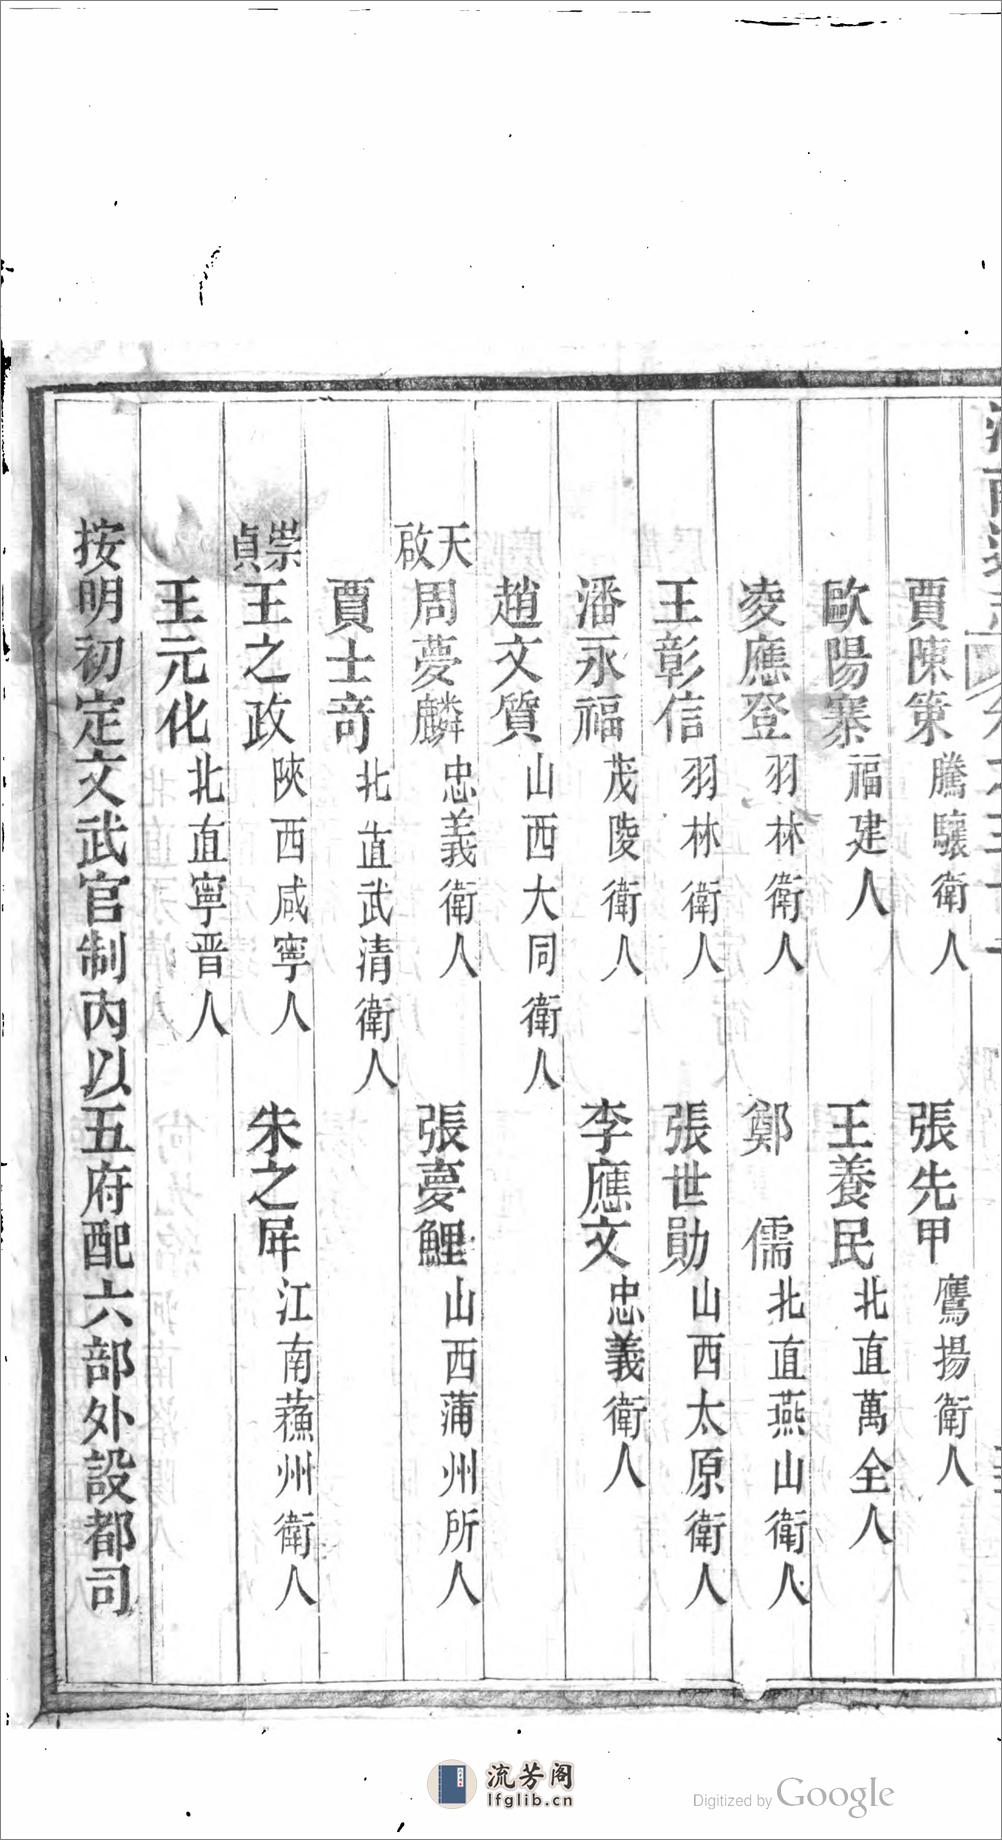 賈陳策騰驤衛人　張先甲鷹揚衛人
歐陽寨福建人　王養民北直萬全人
凌應登羽林衛人　鄭儒北直燕山衛人
王彰信羽林衛人　張世勛山西太原衛人
潘永福茂陵衛人　李應文忠義衛人
趙文質山西大同衛人
天啟周夢麟忠義衛人　張夢鯉山西蒲州所人
賈士奇北直武清衛人
崇貞王之政陝西咸寧人　朱之屏江南蘓州衛人
王元化北直寧晋人
按明初定文武官制內以五府配六部外設都司
流芳阁
lfglib.cn
Digitized by Google